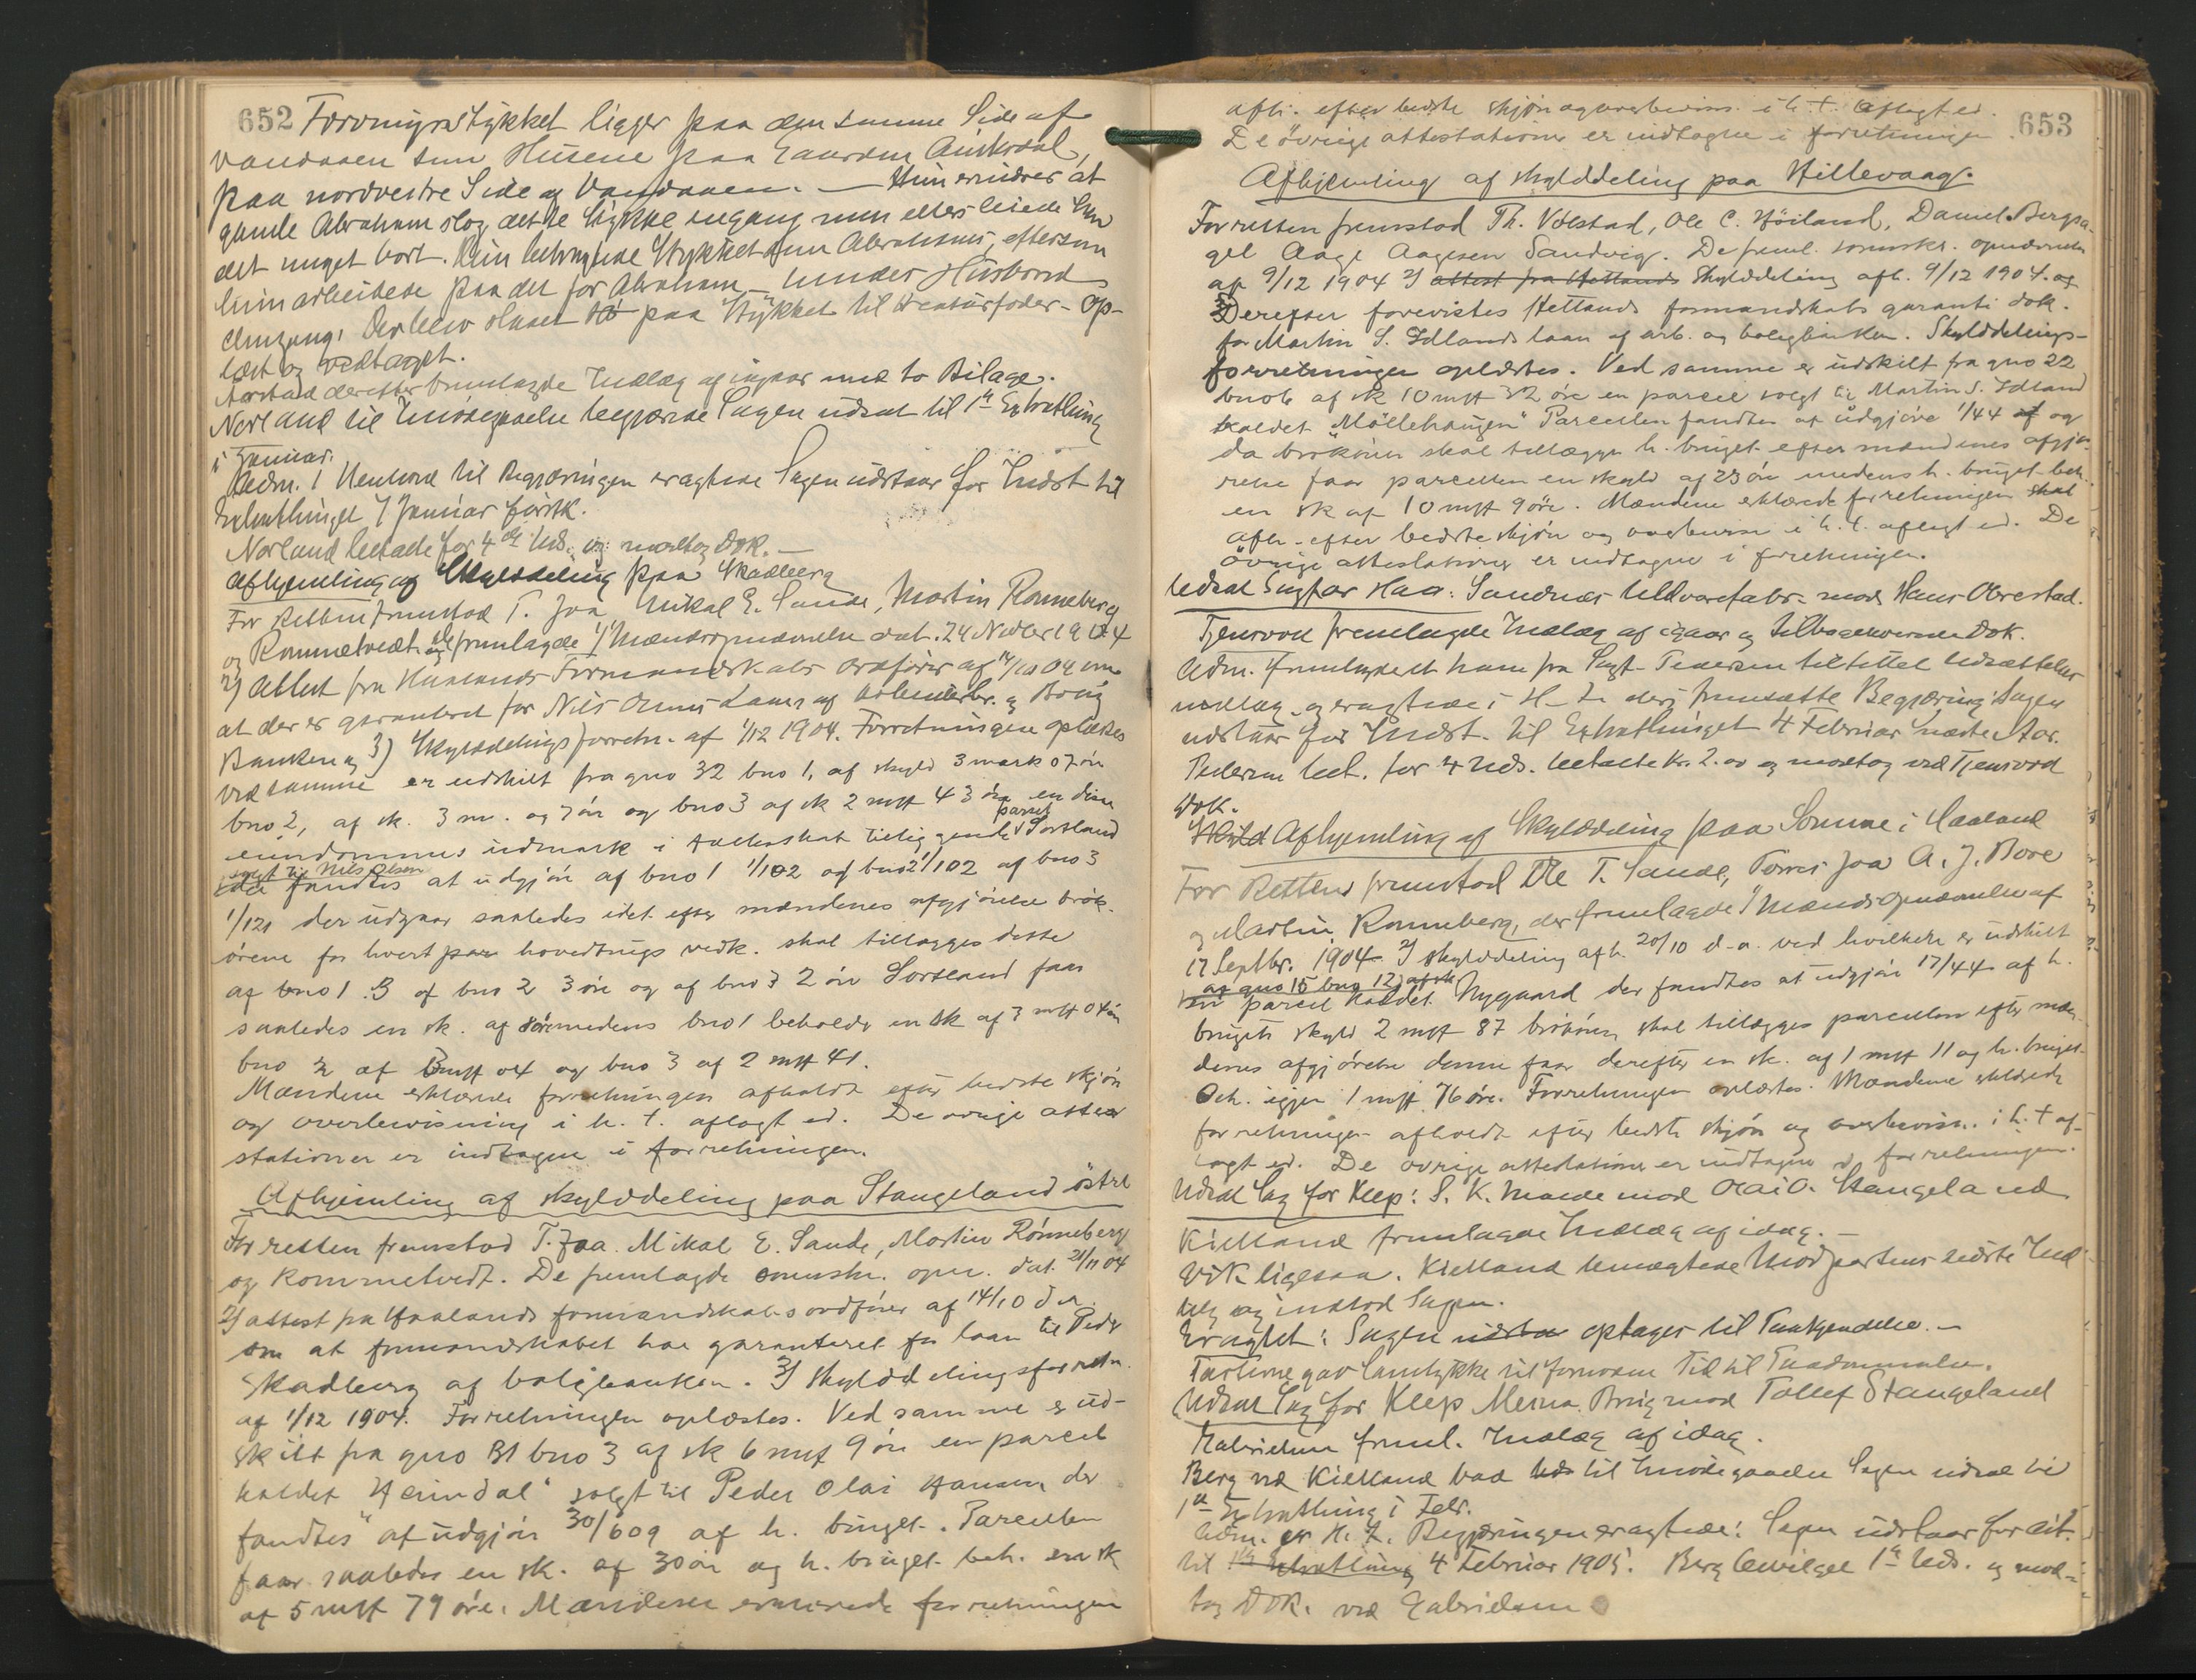 652
Torvmyrstykket ligger paa den samme Side af
vandaaen som Husene paa Gaarden Aniksdal,
paa nordvestre Side af Vandaaen. — Hun erindrer at
gamle Abraham slog dette Stykke engang men ellers leiede han
det meget bort. Hun betragtede Stykket som Abrahams, eftersom
hun arbeidede paa det for Abraham — hendes Husbond
engang. Der blev slaaet Hö paa Stykket til Kreaturfoder – Op-
læst og vedtaget.
Aarstad derefter fremlagde Indlæg af igaar med to Bilage.
Norland til Imødegaaelse begjærede Sagen udsat til 1ste Extrathing
i Januar.
Adm. I Henhold til Begjæringen eragtede Sagen udstaar for Indst til
Extrathinget 7 Januar førstk.
Norland betalte for 4de Uds. og modtog Dok. —
Afhjemling af Skylddeling paa Skadberg
For Retten fremstod T. Joa, Mikal E. Sande, Martin Rønneberg
og Rommetvedt og fremlagde 1) Mændsopnævnelse dat. 24 Novbr 1904
2) Attest fra Haalands Formandskabs ordfører af 14/10 04 om
at der er garanteret for Nils Olsens Laan af Arbeiderbr. og Bolig
Banken og 3) Skylddelingsforretn. af 1/12 1904. Forretningen oplæstes
ved samme er udskilt fra gno 32 bno 1, af skyld 3 mark 07 øre
bno 2, af sk. 3 m. og 7 øre og bno 3 af sk 2 mrk 43 øre en disse
eiendommes udmark i tilliggende parcel Sortland
solgt til Nils Olsen
der fandtes at udgjøre af bno 1 1/102 af bno 2 1/102 af bno 3
1/121 der udgaar saaledes idet efter mændenes afgjørelse brøk-
ørene for hvert hovedbrugs vedk. skal tillægges dette
af bno 1 3 af bno 2 3 øre og af bno 3 2 øre Sortland faar
saaledes en sk. af 8 øre medens bno 1 beholder en sk af 3 mrk 04 øre
bno 2 af 3 mrk 04 og bno 3 af 2 mrk 41.
Mændene erklærede forretningen afholdt efter bedste skjøn
og overbevisning i h. t. aflagt ed. De øvrige atte-
stationer er indtagne i forretningen.
Afhjemling af skylddeling paa Stangeland östre
For retten fremstod T. Joa. Mikal E. Sande, Martin Rønneberg
og Rommetvedt. De fremlagde opn. dat. 21/11 04
2) attest fra Haalands formandskabs ordfører af 14/10 d. a.
om at formandskabet har garanteret for laan til Peder
Skadberg af boligbanken. 3) skylddelingsforretn.
af 1/12 1904. Forretningen oplæstes. Ved samme er ud-
skilt fra gno 31 bno 3 af sk 6 mrk 9 øre en parcel
kaldet "Heimdal" solgt til Peder Olai Hansen, der
fandtes at udgjøre 30/609 af h. bruget. Parcellen
faar saaledes en sk. af 30 øre og h. bruget beh. en sk
af 5 mrk 79 øre. Mændene erklærede forretningen
653
afh. efter bedste skjøn og overbevisn. i h. t. aflagt ed.
De øvrige attestationer er indtagne i forretningen.
Afhjemling af skylddeling paa Hillevaag.
For retten fremstod Th. Vølstad, Ole C. Höiland, Daniel Bergsa-
gel Aage Aagesen Sandvig. De freml. opnævnelse
af 9/12 1904 2) attest fra Hetlands Skylddeling afh. 9/12 1904. og
3) Derefter forevistes Hetlands formandskabs garanti dok.
for Martin S. Idlands laan af arb. og boligbanken. Skylddelings-
forretningen oplæstes. Ved samme er udskilt fra gno 22
bno 6 af sk 10 mrk 32 øre en parcel solgt til Martin S. Idland
kaldet "Møllehaugen" Parcellen fandtes at udgjøre 1/44 af og
da brökören skal tillægges h. bruget efter mændenes afgjø-
relse faar parcellen en skyld af 23 øre medens h. bruget beh.
en sk af 10 mrk 9 øre. Mændene erklærede forretningen
afh. efter bedste skjøn og overbevisn i h. t. aflagt ed. De
øvrige attestationer er indtagne i forretningen.
Udsat Sag for Haa: Sandnæs Uldvarefabr. mod Hans Obrestad.
Tjensvold fremlagde Indlæg af igaar og tilbageleverede Dok.
Adm. fremlagde et ham fra Sagf. Pedersen tilstillet Udsættelses
indlæg, og eragtede i H. t. deri fremsatte Begjæring: Sagen
udstaar for Indst. til Extrathinget 4 Februar næste Aar.
Pedersen bet. for 4 Uds. betalte Kr. 2.00 og modtog ved Tjensvold
Dok.
Afhjemling af Skylddeling paa Sømme i Haaland
For Retten fremstod Ole T. Sande, Tørres Joa A. J. Bore
og Martin Rønneberg, der fremlagde 1) Mændsopnævnelse af
17 Septbr. 1904 2) skylddeling afh. 20/10 d. a. ved hvilken er udskilt
af gno 15 bno 12, af sk
en parcel kaldet Nygaard der fandtes at udgjøre 17/44 af h.
brugets skyld 2 mrk 87 brökören skal tillægges parcellen efter mæn-
denes afgjørelse denne faar derefter en sk. af 1 mrk 11 og h. bruget
beh. igjen 1 mrk 76 øre. Forretningen oplæstes. Mændene erklærede
forretningen afholdt efter bedste skjøn og overbevisn. i h. t. af-
lagt ed. De øvrige attestationer er indtagne i forretningen.
Udsat Sag for Klep: S. K. Malde mod Olai O. Stangeland
Kielland fremlagde Indlæg af idag. —
Vik ligesaa. Kielland benægtede Modpartens sidste Ind-
læg og indlod Sagen.
Eragtet: Sagen optages til Paakjendelse. —
Parterne gav Samtykke til fornøden Tid til Paadømmelse.
Udsat Sag for Klep Meina Brug mod Tollef Stangeland
Gabrielsen freml. Indlæg af idag.
Berg ved Kielland bad til Imødegaaelse Sagen udsat til
1ste Extrathing i Febr.
Adm. H. t. Begjæringen eragtede: Sagen udstaar for Cit.
til 1ste Extrathing 4 Februar 1905. Berg bevilget 1ste Uds. og mod-
tog Dok. ved Gabrielsen